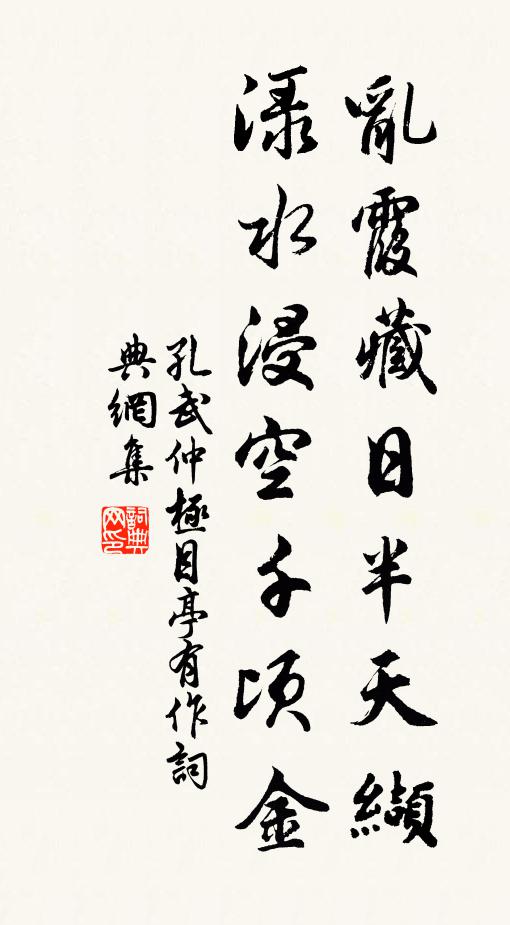 亂霞藏日半天纈
渌水浸空千頃金
孔武仲極目亭有作詞
典網集
詞典網印